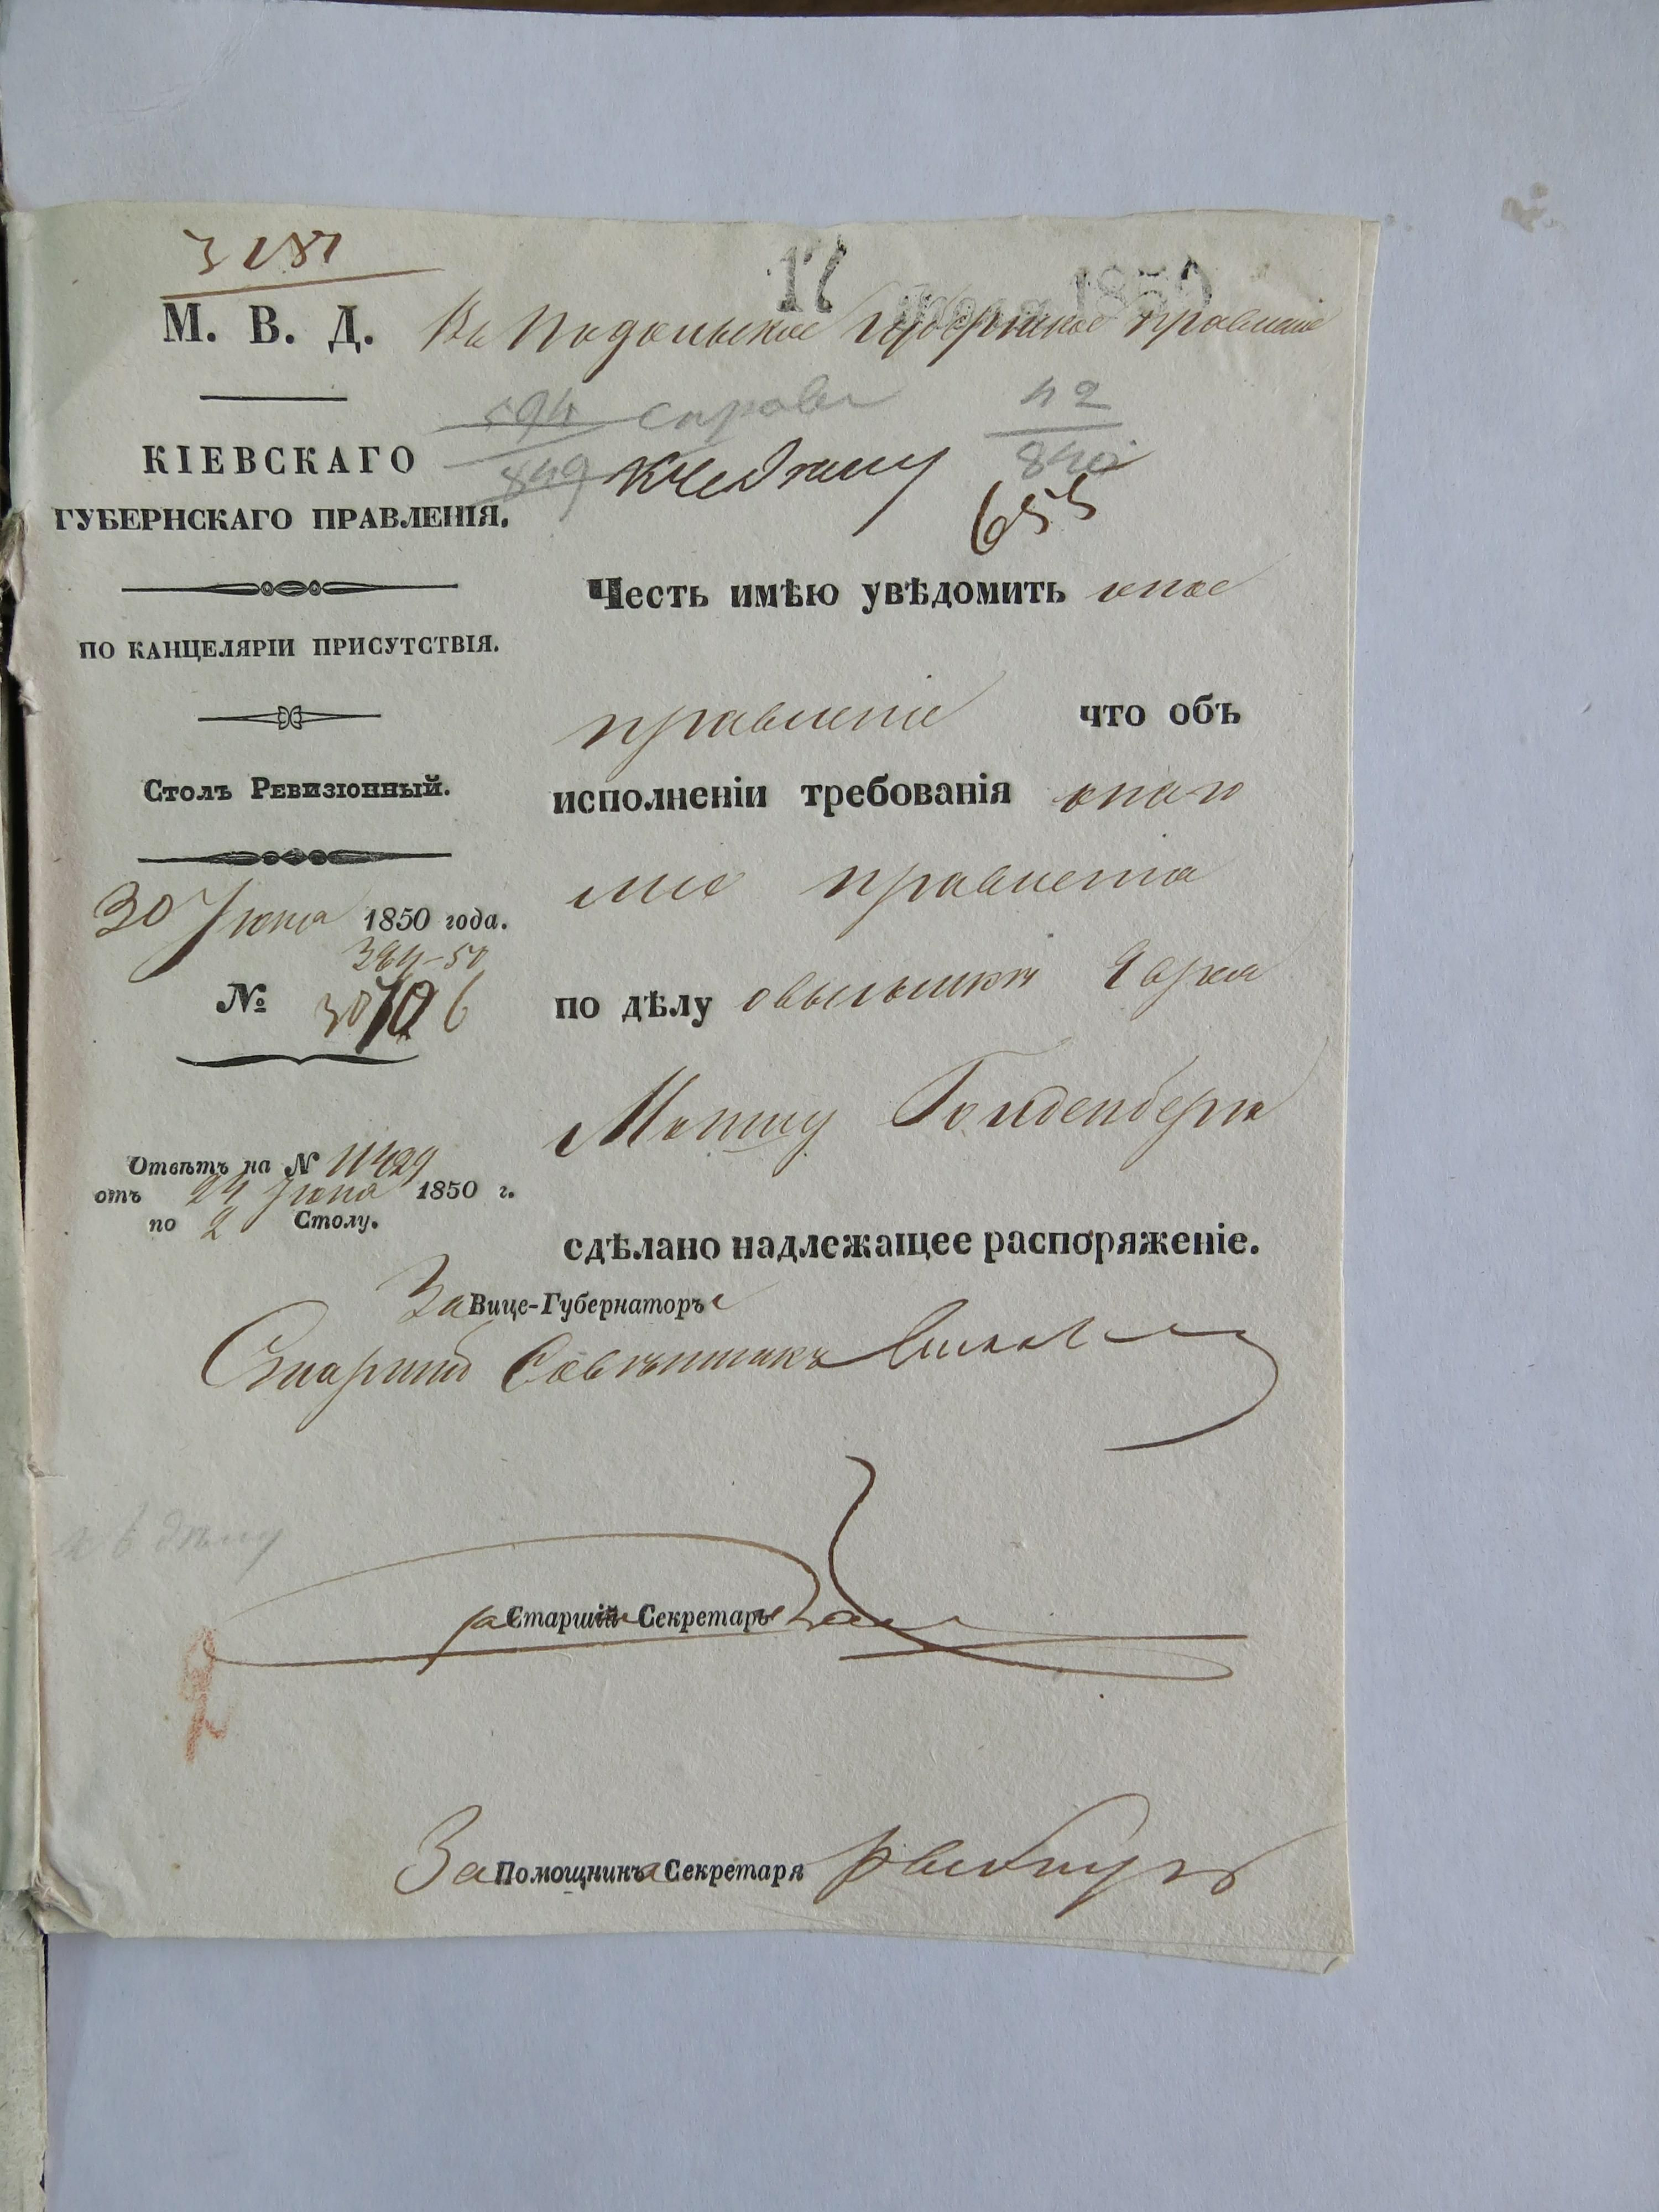 3287
17 1850
М. В. Д.
Въ Подольское Губернское Правленіе
594 справк 42
849 840
КІЕВСКАГО
ГУБЕРНСКАГО ПРАВЛЕНІЯ.
655
ПО КАНЦЕЛЯРІИ ПРИСУТСТВІЯ.
Столъ Ревизіонный.
30 Іюня 1850 года.
№ 30706
Отвѣтъ на № 11429
отъ 24 Іюня 1850 г.
по 2 Столу.
Честь имѣю увѣдомить оное
правленіе что объ
исполненіи требованія онаго
же правленія
по дѣлу о высылкѣ
Мошку Гольденберга
сдѣлано надлежащее распоряженіе.
За Вице-Губернатора
Старшій Совѣтникъ
къ дѣлу
за Старшій Секретаря
За Помощника Секретаря